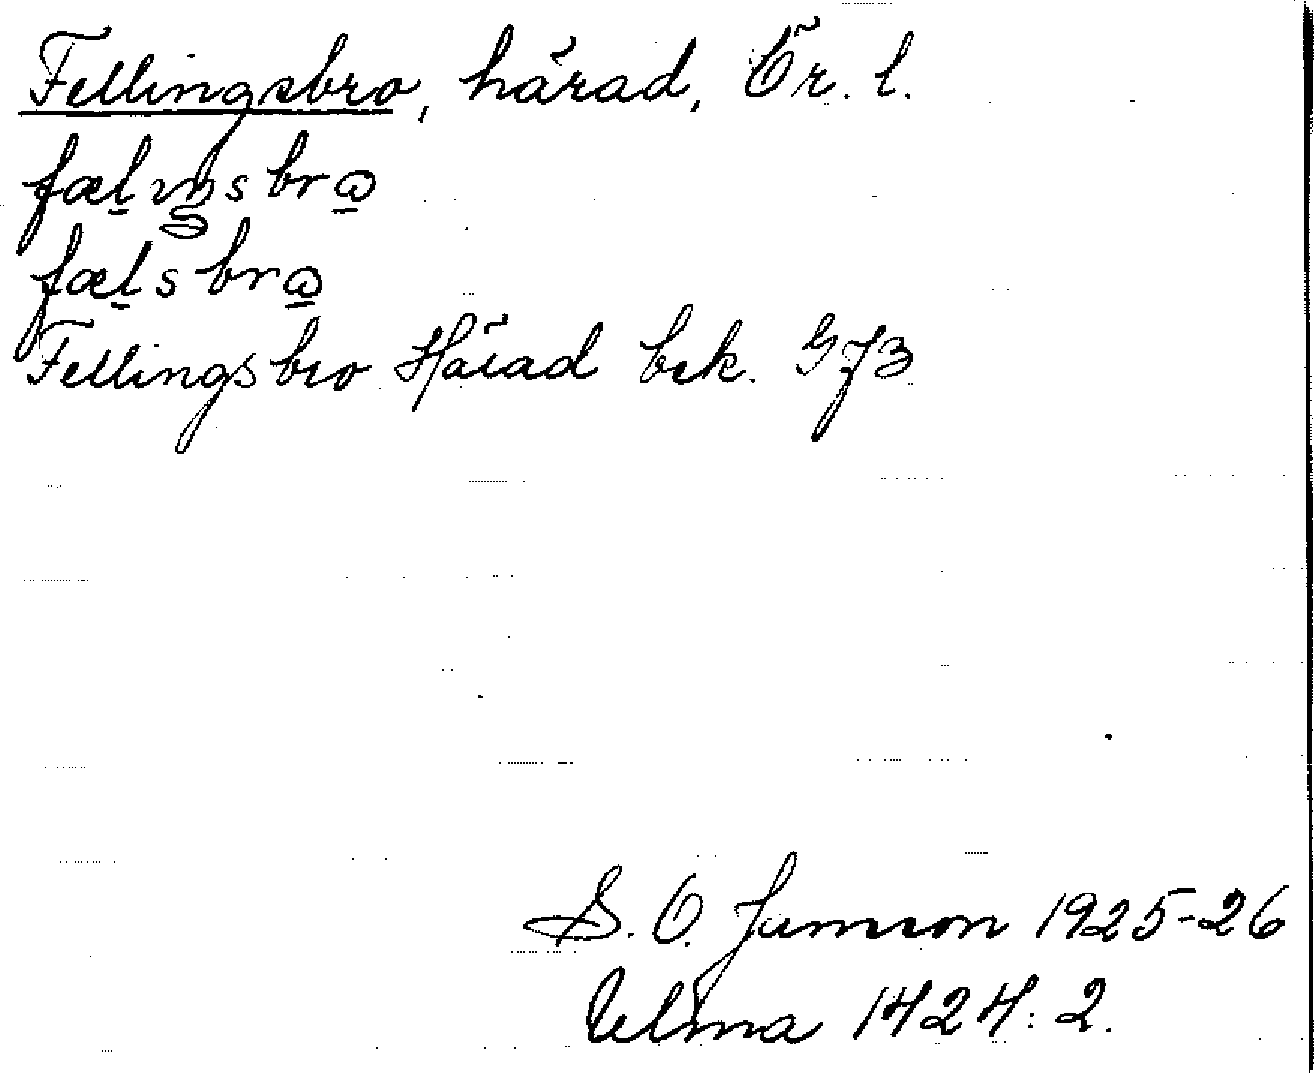 Fellingsbro, härad, Ör. l.
fælıŋsbrω
fælsbrω
Fellingsbro Härad bek. Gf3
S. O. Jansson 1925-26
Ulma 1424:2.